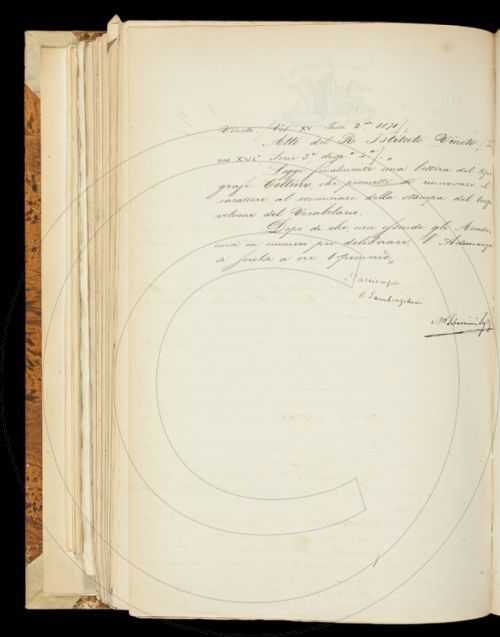 Veneto, Vol. XV Serie 3ª 1871).
Atti del R. Istituto Veneto,
XVIº Serie 3ª dispª 2ª).
Leggo finalmente una lettera del tipo-
grafo Cellini, che promette di rinnovare il
carattere al cominciare della stampa del terzo
volume del Vocabolario.
Dopo di che non essendo gli Accade-
mici in numero per deliberare, l'Adunanza
è sciolta a ore
R. Lambruschini